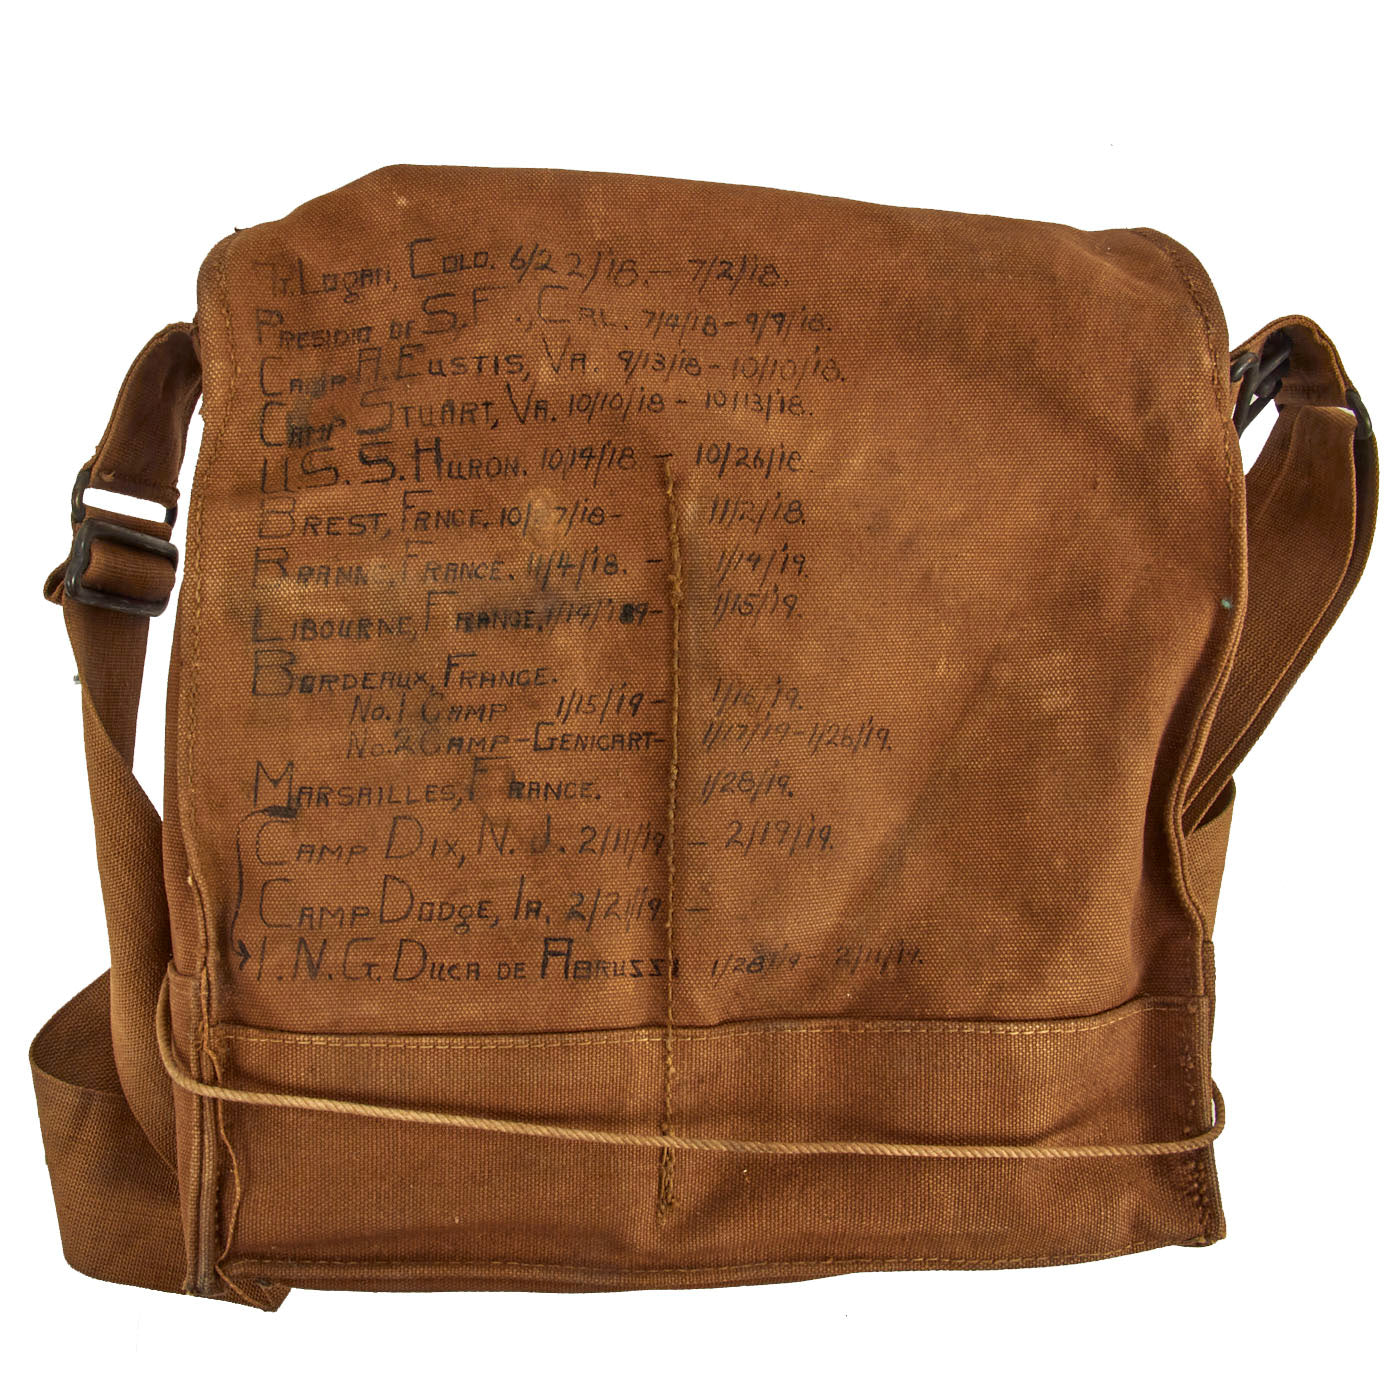 Ft. Logan, Colo. 6/22/'18. - 7/2/'18.
Presidio de S.F., Cal. 7/4/18 - 9/9/'18.
Camp A. Eustis, Va. 9/13/18 - 10/10/'18.
Camp Stuart, Va. 10/10/'18 - 10/13/'18.
U.S.S. Huron. 10/14/18 - 10/26/18.
Brest, Frnce. 10/27/18 - 11/2/18.
Branne, France. 11/4/'18. - 1/14/'19.
Libourne, France, 1/14/'19 - 1/15/'19.
Bordeaux, France.
No. 1 Camp 1/15/'19 - 1/16/'19.
No. 2 Camp - Genicart - 1/17/'19 - 1/26/'19.
Marsailles, France. 1/28/'19.
Camp Dix, N. J. 2/11/'19 - 2/19/'19.
Camp Dodge, Ia. 2/21/'19 -
I.N.Gt. Duca de Abrussi 1/28/'19 - 2/11/'19.